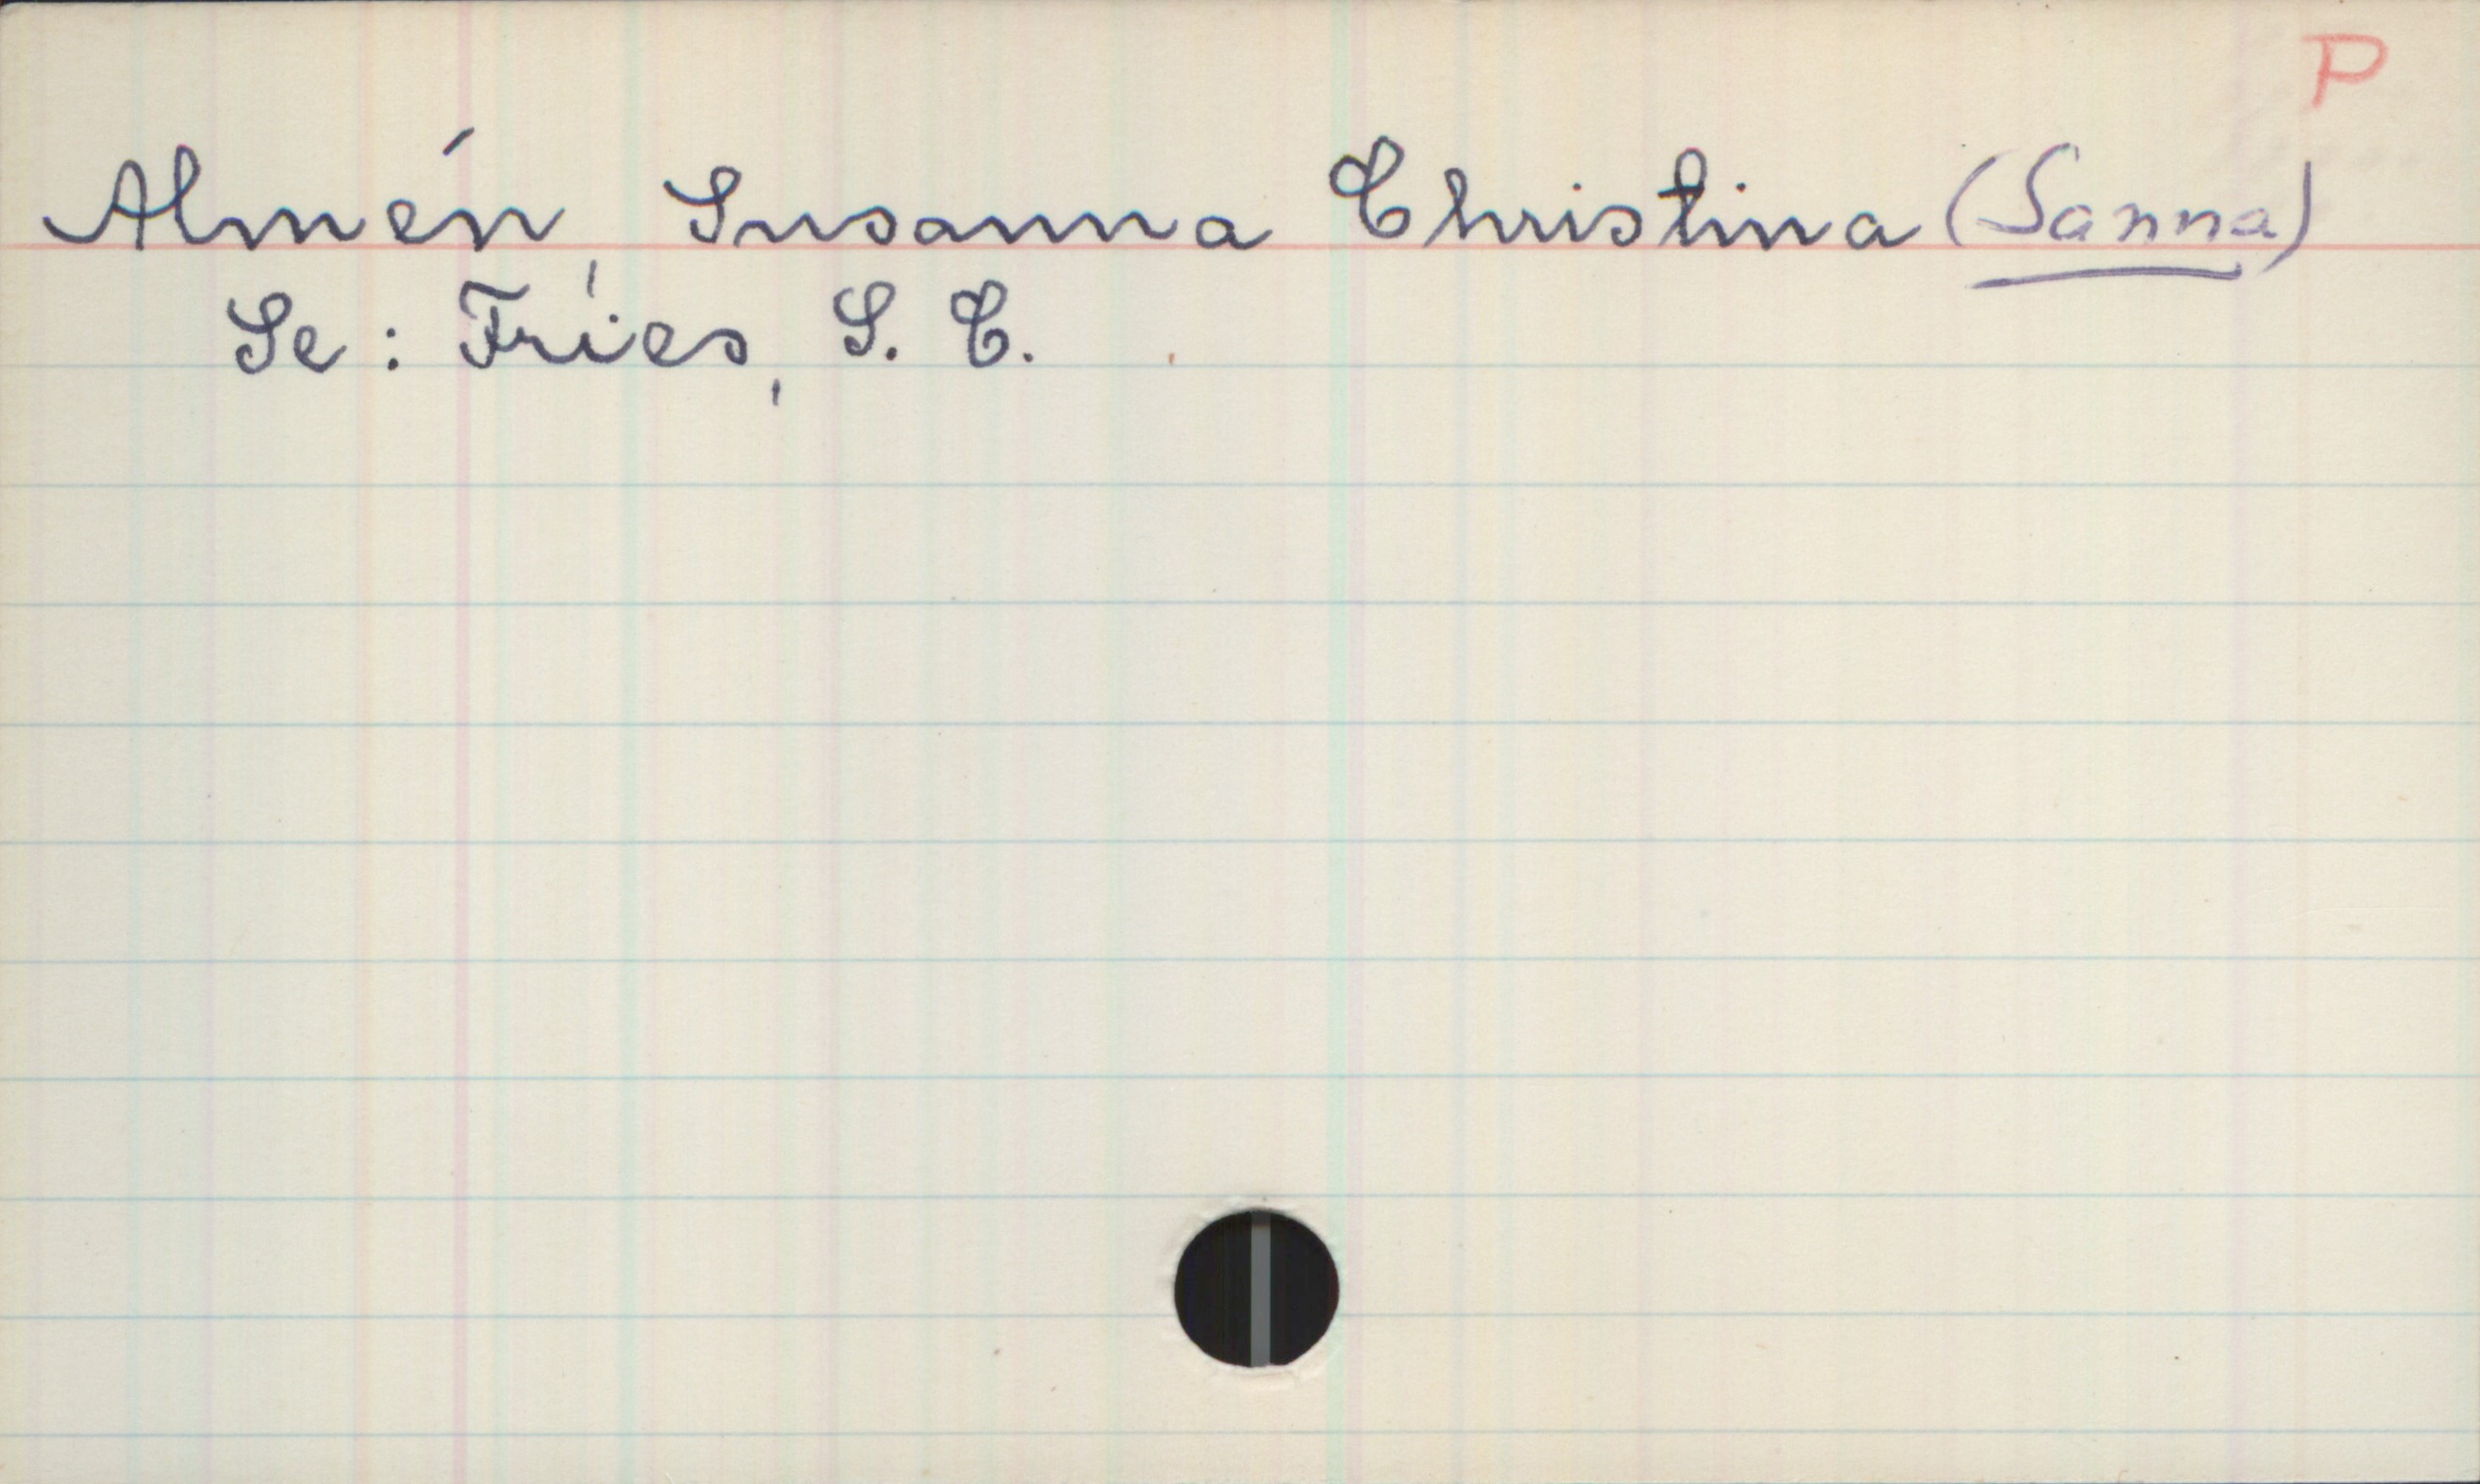 P
Almén, Susanna Christina (Sanna)
Se: Fries, S. C.